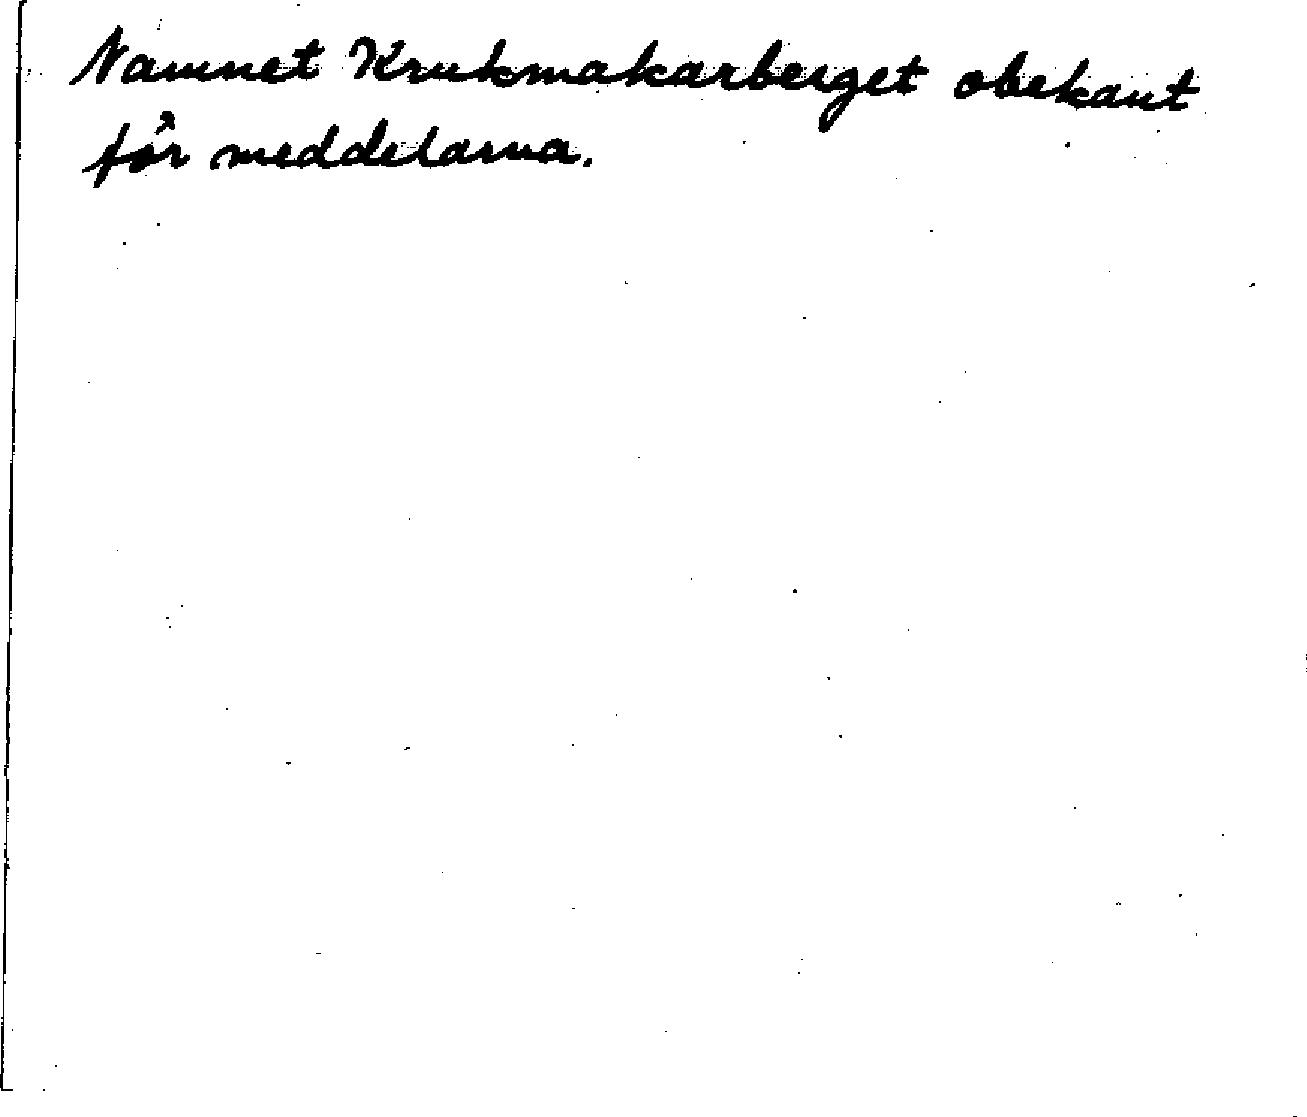 Namnet Krukmakarberget obekant
för meddelarna.